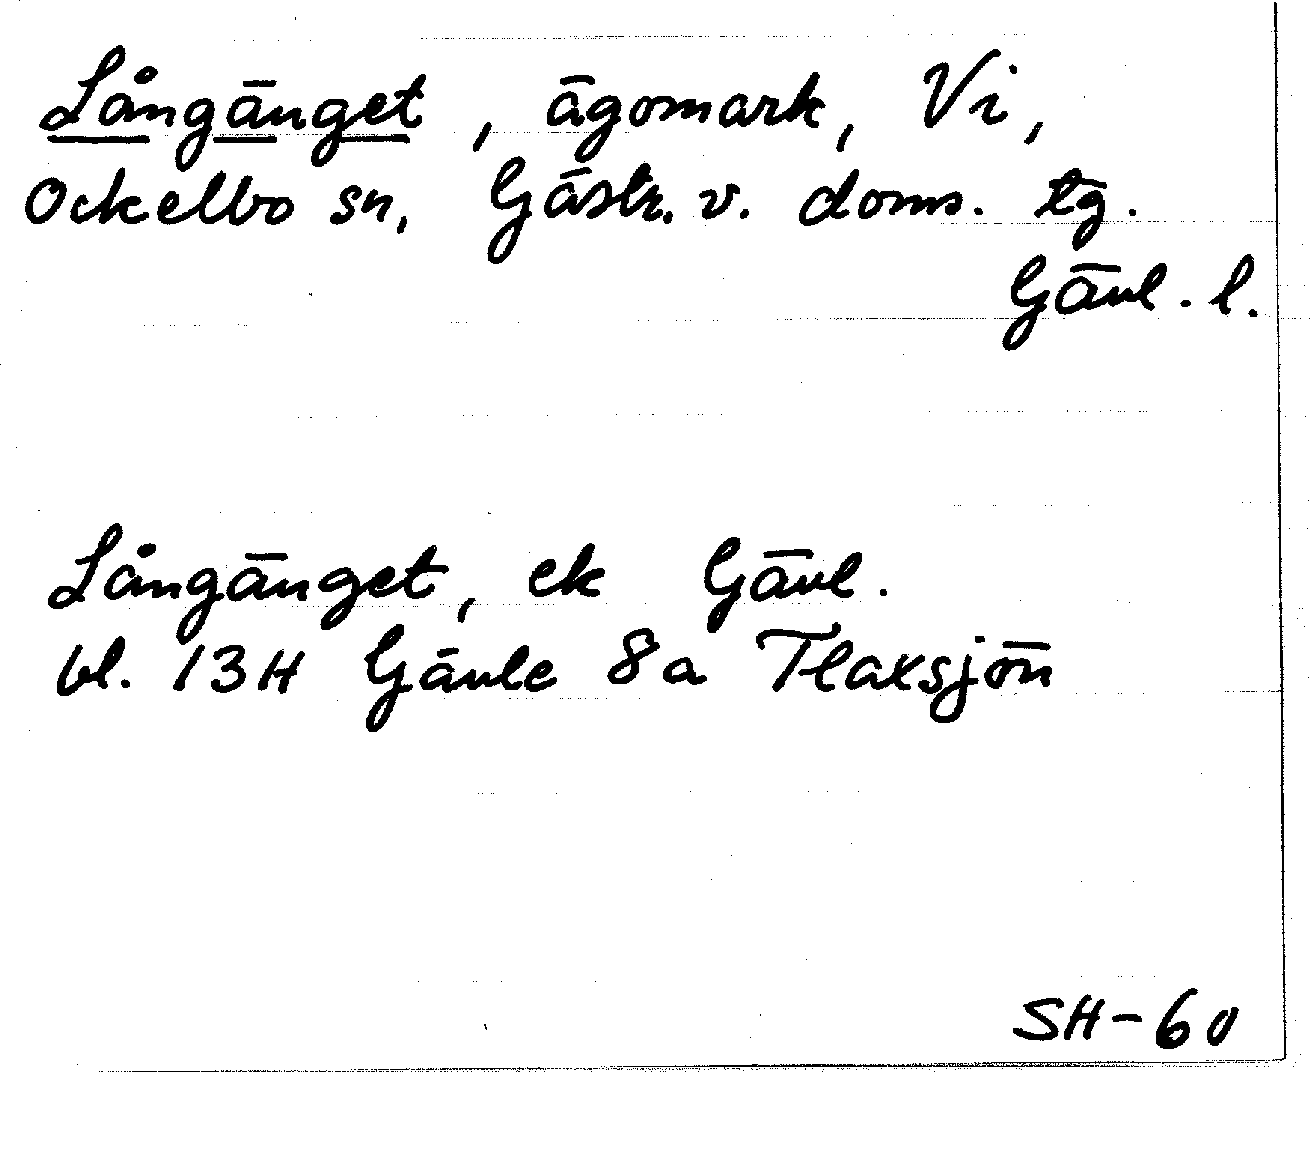 Långänget, ägomark, Vi,
Ockelbo sn, Gästr. v. doms. tg.
Gävl. l.
Långänget, ek Gävl.
bl. 13H Gävle 8a Flaxsjön
SH-60